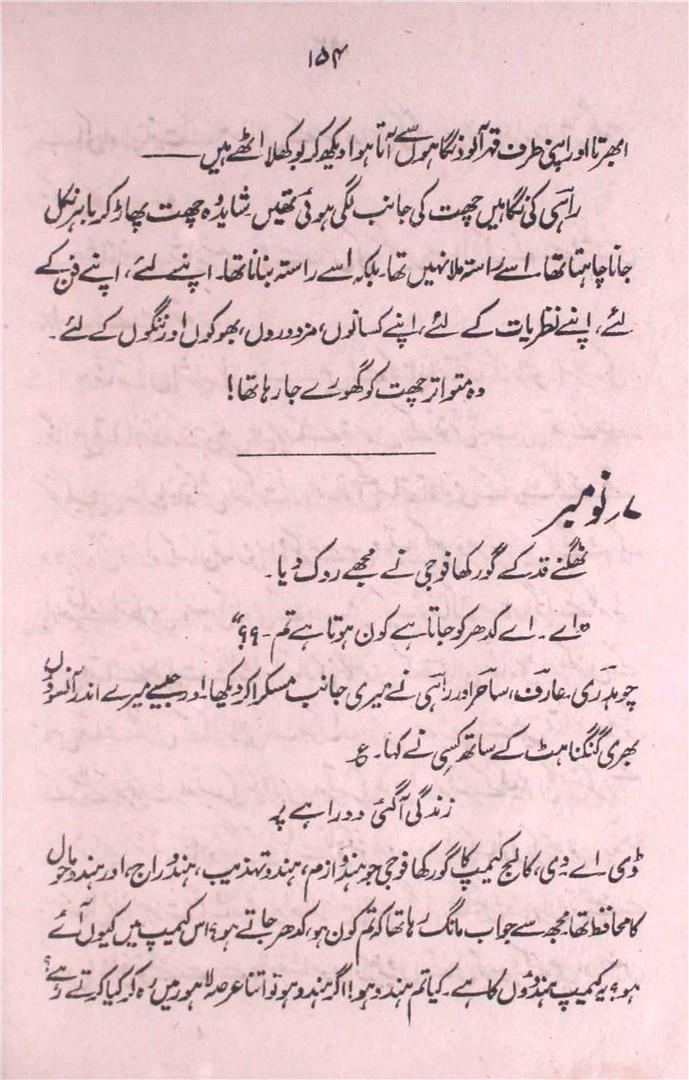 ۱۵۴
ابھرتا اور اپنی طرف قہر آلود نگاہوں سے آتا ہوا دیکھ کر بوکھلا اٹھے ہیں ——
راہی کی نگاہیں چھت کی جانب لگی ہوئی تھیں۔ شاید وہ چھت پھاڑ کر باہر نکل
جانا چاہتا تھا۔ اسے راستہ ملا نہیں تھا۔ بلکہ اسے راستہ بنانا تھا۔ اپنے لئے، اپنے فن کے
لئے، اپنے نظریات کے لئے، اپنے کسانوں، مزدوروں، بھوکوں اور ننگوں کے لئے۔
وہ متواتر چھت کو گھورے جا رہا تھا!
۷؍ نومبر
ٹھگنے قد کے گورکھا فوجی نے مجھے روک دیا۔
"اے۔ اے کدھر کو جاتا ہے کون ہوتا ہے تم۔؟؟"
چوہدری۔ عارف، ساحر اور راہی نے میری جانب مسکرا کر دیکھا۔ اور جیسے میرے اندر آنسوؤں
بھری گنگناہٹ کے ساتھ کسی نے کہا۔ ع
زندگی آ گئی دوراہے پر
ڈی۔ اے۔ وی، کالج کیمپ کا گورکھا فوجی جو ہندوازم، ہندو تہذیب، ہندو راج، اور ہندو ماحول
کا محافظ تھا۔ مجھ سے جواب مانگ رہا تھا کہ تم کون ہو، کدھر جاتے ہو؟ اس کیمپ میں کیوں آئے
ہو؟ یہ کیمپ ہندوؤں کا ہے۔ کیا تم ہندو ہو! اگر ہندو ہو تو اتنا عرصہ لاہور میں رہ کر کیا کرتے رہے؟